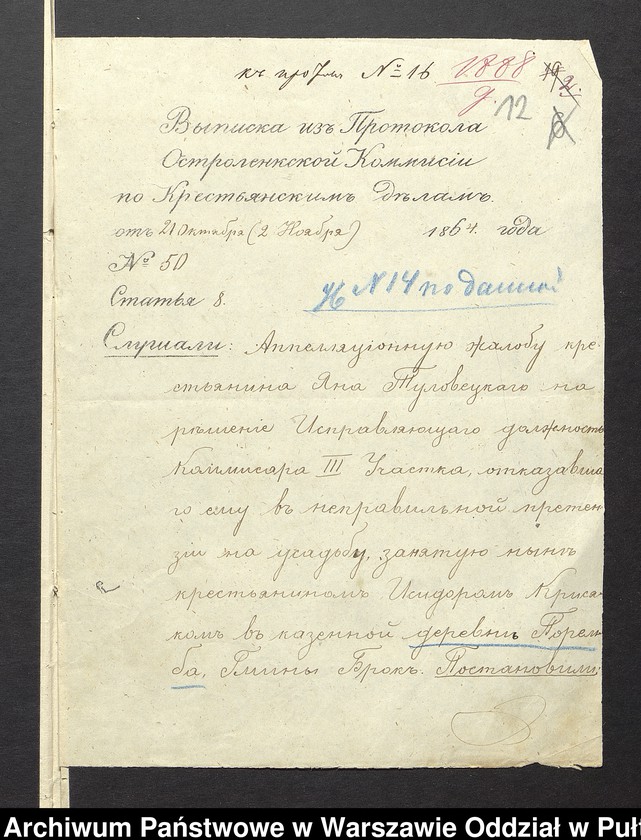 къ прот. № 16 1888 19 21
д. 12
Выписка изъ Протокола
Остроленкской Коммисіи
по Крестьянскимъ Дѣламъ.
отъ 21 Октября (2 Ноября) 1864. года
№ 50
Статья 8.
№ 14 по данной
Слушали: Аппелляціонную жалобу кре-
стьянина Яна Туловецкаго на
рѣшеніе Исправляющаго должность
Коммисара III Участка, отказавша
го ему въ неправильной претен-
зіи на усадьбу, занятую нынѣ
крестьяниномъ Исидоромъ Криса-
комъ въ казенной деревнѣ Порем-
ба, Гмины Брокъ. Постановили:
Archiwum Państwowe w Warszawie Oddział w Puł